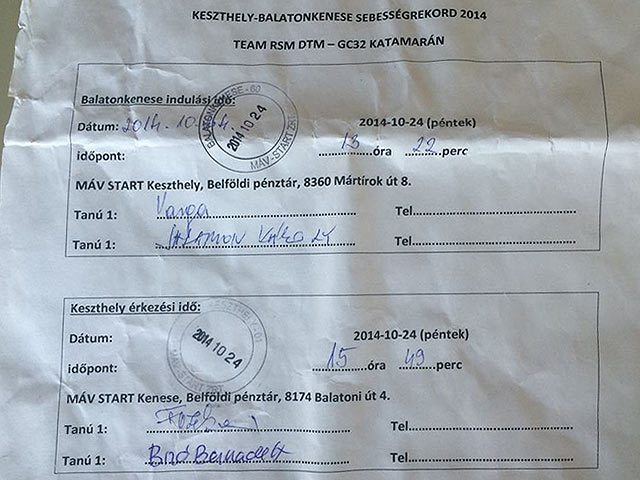 KESZTHELY-BALATONKENESE SEBESSÉGREKORD 2014
TEAM RSM DTM – GC32 KATAMARÁN
Balatonkenese indulási idő:
BALATONKENESE - 60
2014 10 24
MÁV-START ZRt
Dátum: 2014. 10. 24 2014-10-24 (péntek)
időpont: 13 óra 22 perc
MÁV START Keszthely, Belföldi pénztár, 8360 Mártírok út 8.
Tanú 1: Varga Tel
Tanú 1: SALAMON KÁROLY Tel
Keszthely érkezési idő:
KESZTHELY-01
2014 10 24
MÁV-START ZRt
Dátum: 2014-10-24 (péntek)
időpont: 15 óra 49 perc
MÁV START Kenese, Belföldi pénztár, 8174 Balatoni út 4.
Tanú 1: Tel
Tanú 1: Bíró Bernadett Tel